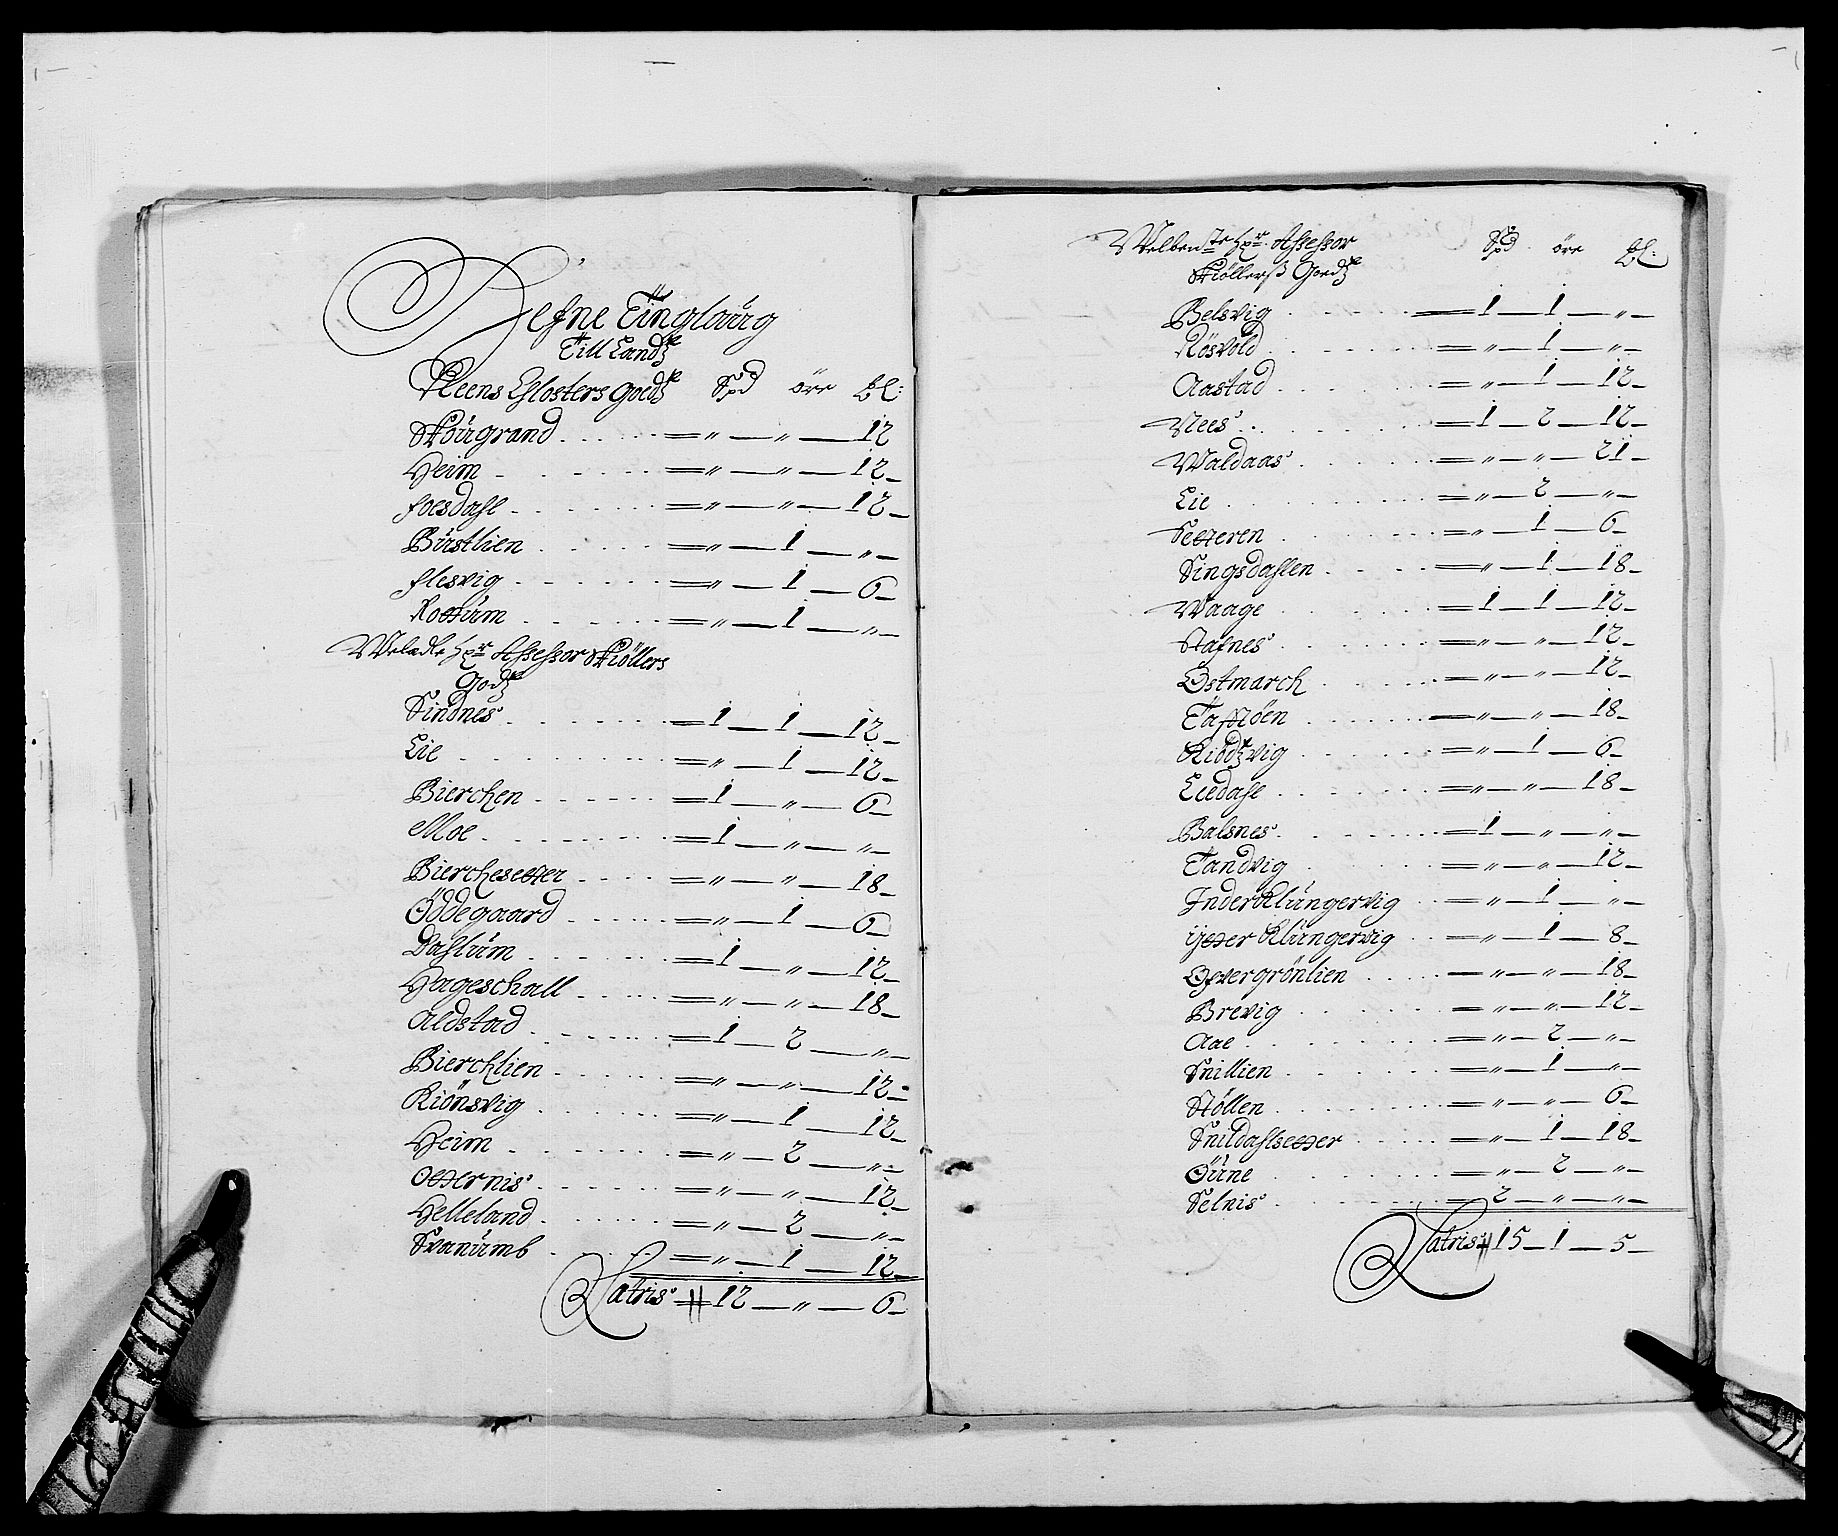 Hefne Tinglaug
Till Landz
Reens Closters goedz Spd öre bl:
Skougrand = „ — „ — 12
Heim = „ — „ — 12 –
foesdahl = „ — „ — 12 –
Bürstlien = „ — 1 — „ –
flesvig = „ — 1 — 6 –
Rottüm = „ — 1 — „ –
Assessor Skiöllers
Godz
Sindnes = 1 — 1 — 12 –
Lie = „ — 1 — 12 –
Bierchen = 1 — „ — 6 –
Moe = 1 — „ — „ –
Bierchesetter = „ — „ — 18 –
Öddegaard = „ — 1 — 6 –
Dahlüm = 1 — „ — 12 –
Hageschall = „ — „ — 18 –
Aldstad = 1 — 2 — „ –
Bierchlien = „ — „ — 12 –
Kiönsvig = „ — 1 — 12 –
Heim = „ — 2 — „ –
Otternis = „ — „ — 12 –
Helleland = „ — 2 — „ –
Svanümb = „ — 1 — 12 –
Latris = 12 — „ — 6 –
Velbenste Hr Assessor Spd öre bl:
Skiöllerß Goedz
Belsvig = 1 — 1 — „ –
Rösvold = „ — 1 — „ –
Aastad = „ — 1 — 12 –
Nees = 1 — 2 — 12 –
Waldaas = „ — „ — 21 –
Lie = „ — 2 — „ –
Setteren = „ — 1 — 6 –
Singsdahlen = „ — 1 — 18 –
Waage = 1 — 1 — 12 –
Stafnes = „ — „ — 12 –
Östmarch = „ — „ — 12 –
Taftöen = „ — „ — 18 –
Kiödzvig = „ — 1 — 6 –
Liedahl = „ — „ — 18 –
Balsnes = 1 — „ — „ –
Tandvig = „ — „ — 12 –
Inder Klüngervig = „ — 1 — „ –
Ÿtter Klüngervig = „ — 1 — 8 –
Ofvergrönlien = „ — „ — 18 –
Brevig = „ — „ — 12 –
Aae = „ — 2 — „ –
Snillien = „ — 1 — „ –
Stöllen = „ — „ — 6 –
Snildahlsetter = „ — 1 — 18 –
Öüne = „ — 2 — „ –
Selnis = 2 — „ — „ –
Latris 15 — 1 — 5 –